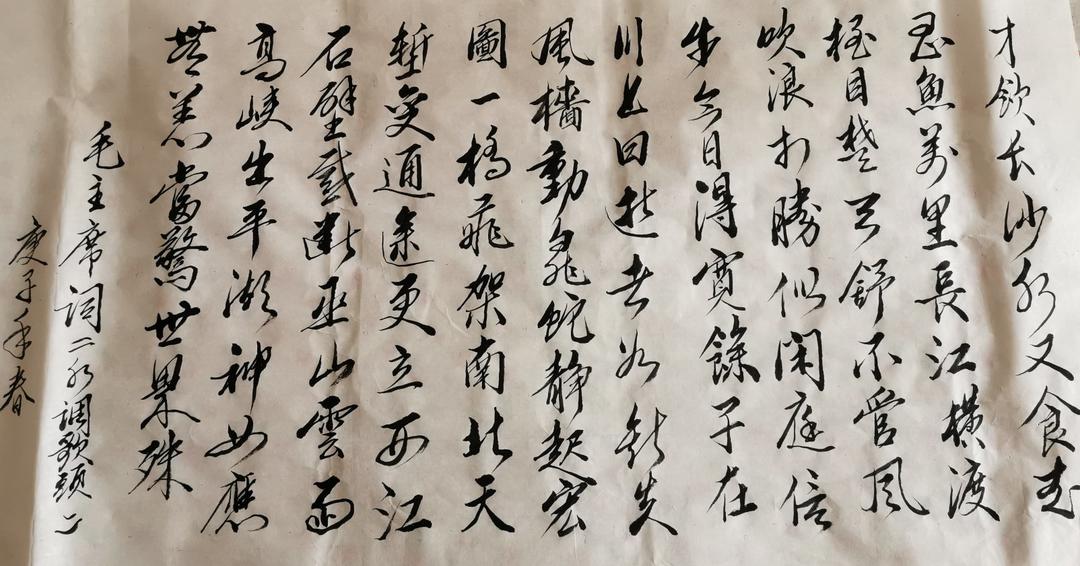 才飲长沙水又食武
昌魚萬里長江橫渡
極目楚天舒不管風
吹浪打勝似闲庭信
步今日得寬餘子在
川上曰逝者如斯夫
風檣動龜蛇静起宏
圖一橋飛架南北天
塹變通途更立西江
石壁截斷巫山雲雨
高峽出平湖神女應
無恙當驚世界殊
毛主席詞《水調歌頭》
庚子年春